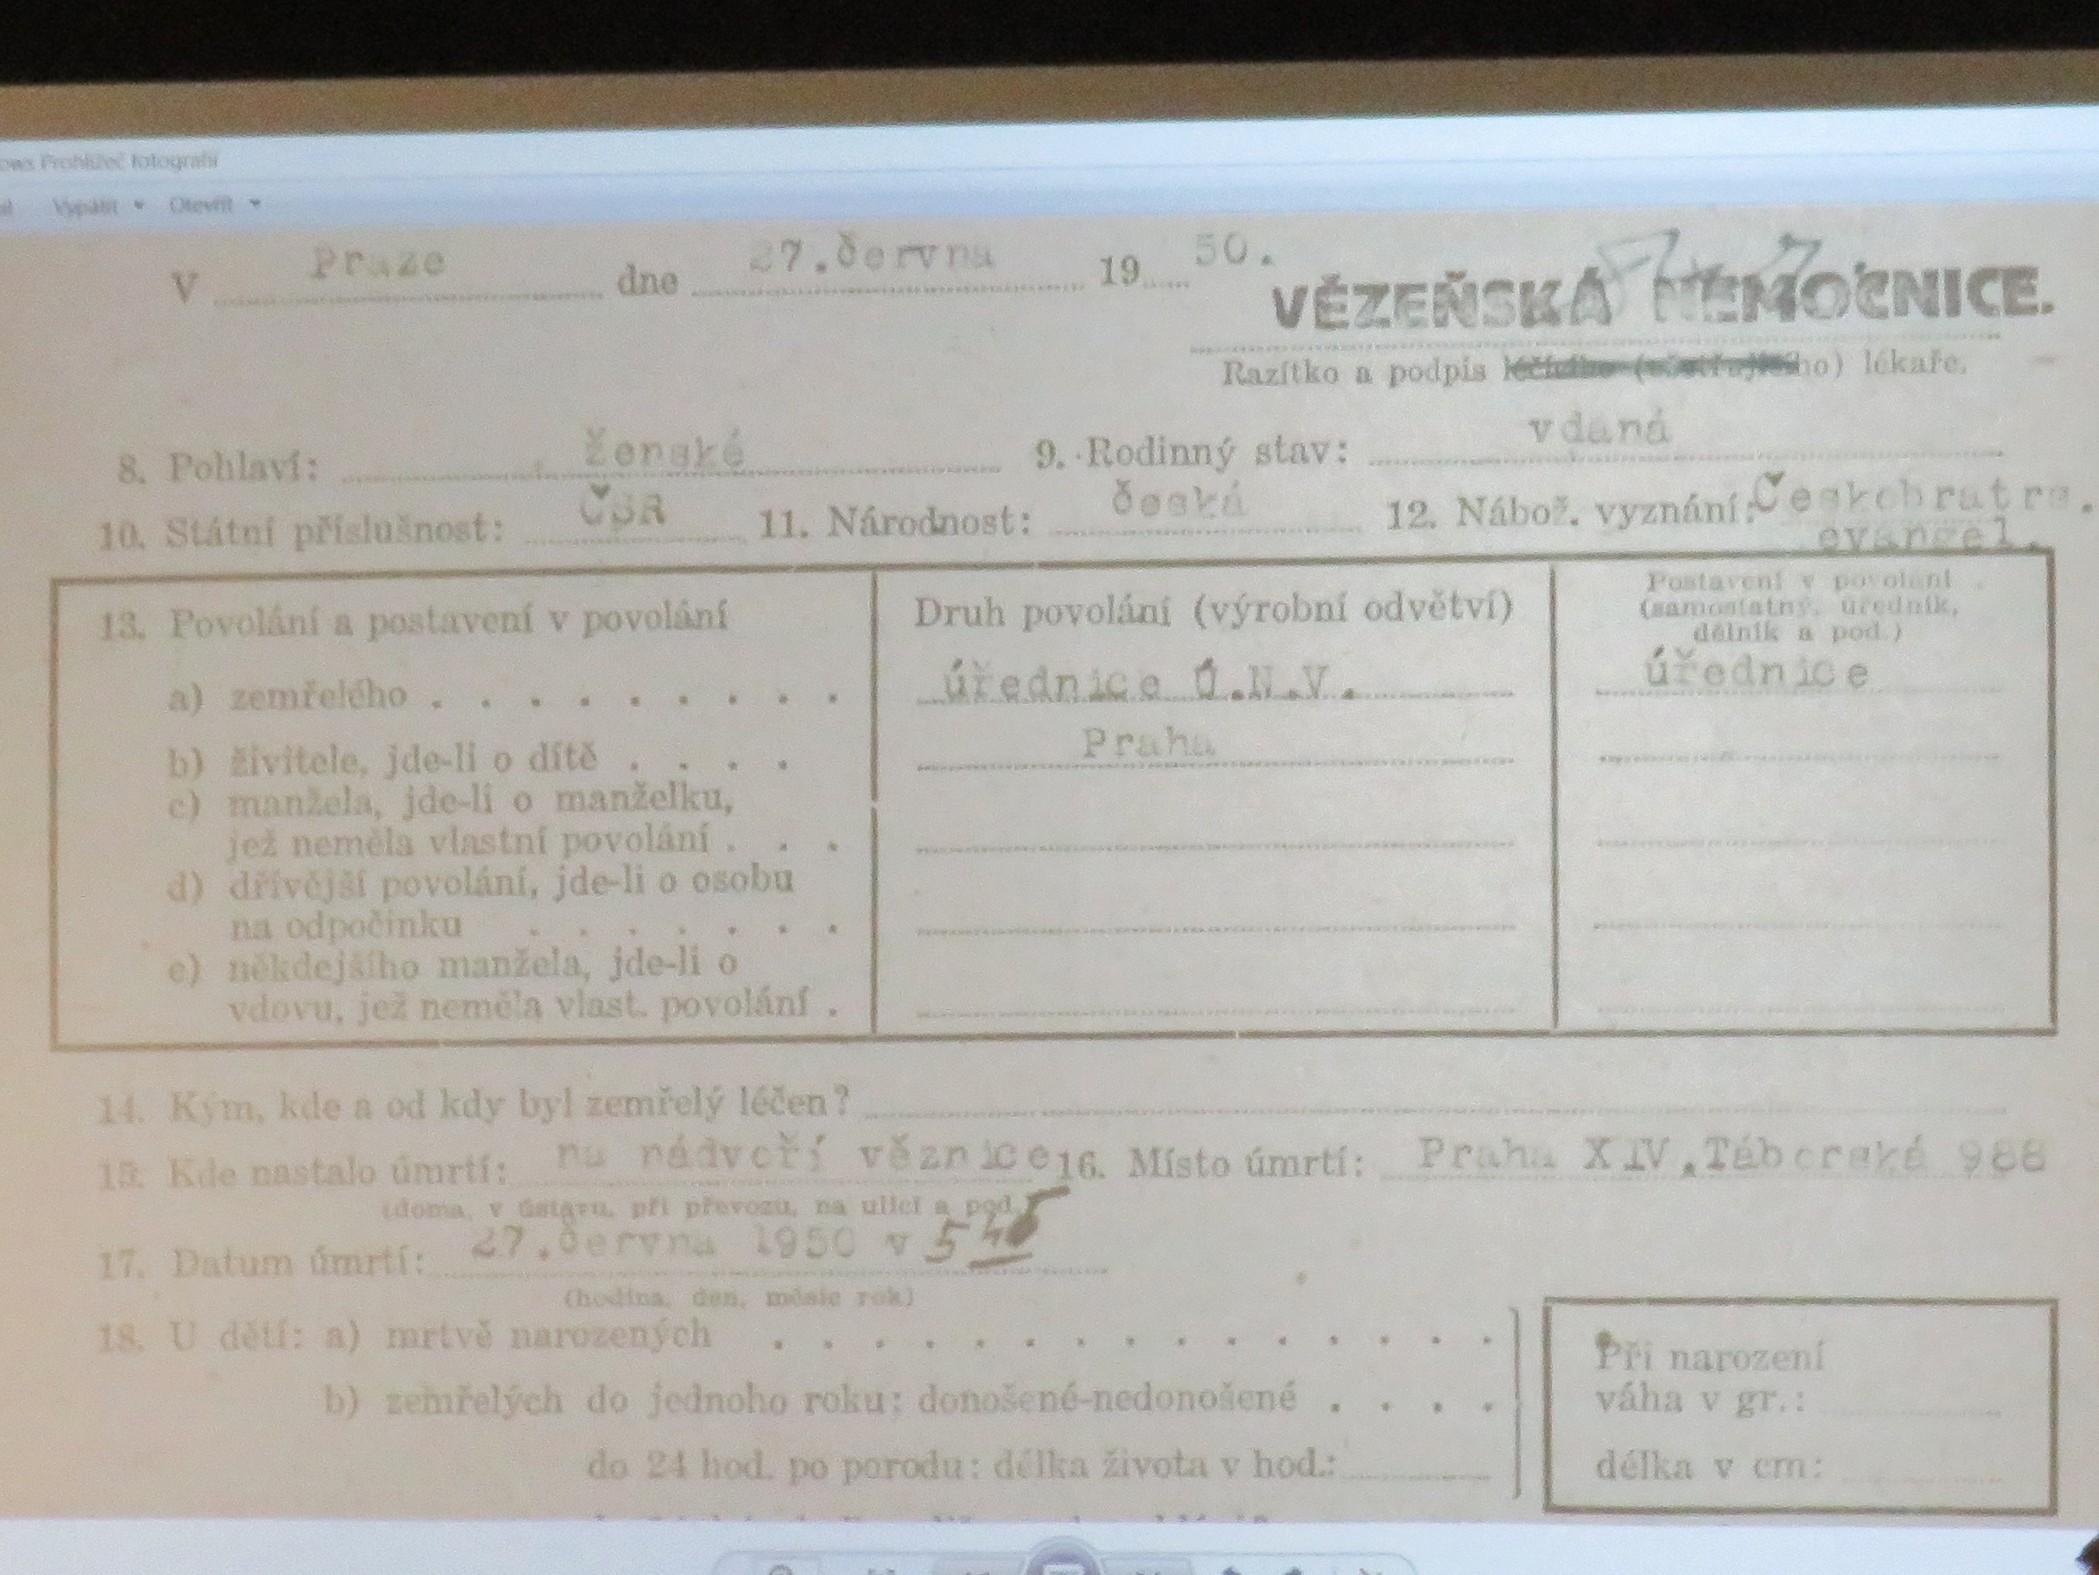 Prohlížeč fotografií
Vypálit Otevřít
V Praze dne 27.června 19 50.
VĚZEŇSKÁ NEMOCNICE.
Razítko a podpis lékaře.
8. Pohlaví: ženské 9. Rodinný stav: vdaná
10. Státní příslušnost: ČSR 11. Národnost: česká 12. Nábož. vyznání: Českobratrs.
evangel.
13. Povolání a postavení v povolání Druh povolání (výrobní odvětví) Postavení v povolání
(samostatný, úředník,
dělník a pod.)
a) zemřelého . . . . . . . . . úřednice Ú.N.V. úřednice
b) živitele, jde-li o dítě . . . . Praha
c) manžela, jde-li o manželku,
jež neměla vlastní povolání . . .
d) dřívější povolání, jde-li o osobu
na odpočinku . . . . . . .
e) někdejšího manžela, jde-li o
vdovu, jež neměla vlast. povolání .
14. Kým, kde a od kdy byl zemřelý léčen?
15. Kde nastalo úmrtí: na nádvoří věznice 16. Místo úmrtí: Praha XIV, Táborská 988
(doma, v ústavu, při převozu, na ulici a pod.)
17. Datum úmrtí: 27.června 1950 v 5
(hodina, den, měsíc rok)
18. U dětí: a) mrtvě narozených . . . . . . . . . . . . . . .
b) zemřelých do jednoho roku: donošené-nedonošené . . . .
do 24 hod. po porodu: délka života v hod.:
Při narození
váha v gr.:
délka v cm: